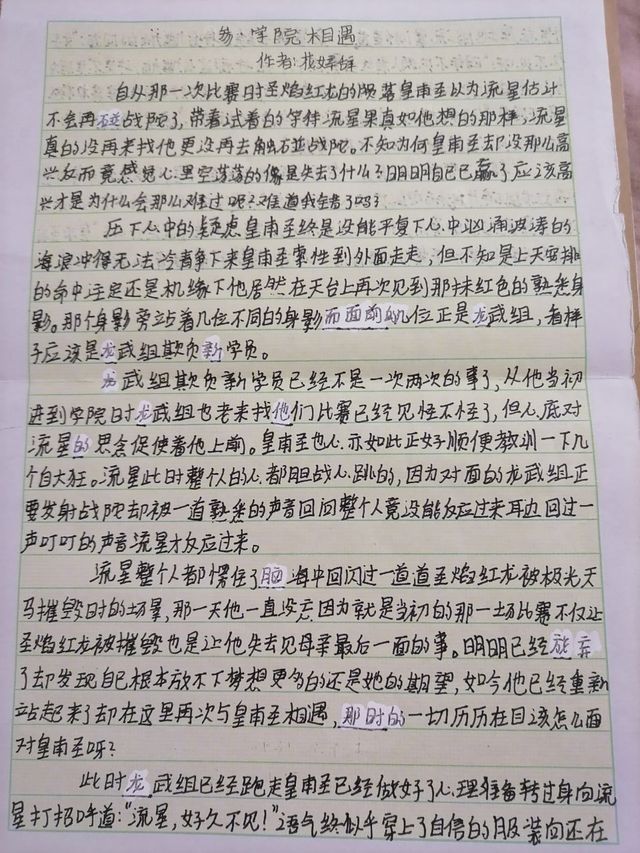 学院相遇
作者:
自从那一次比赛时圣焰红龙的陨落皇甫圣以为流星估计
不会再碰战陀了,带着试着的等伴流星果真如他想的那样,流星
真的没再来找他更没再去触碰战陀。不知为何皇甫圣却没那么高
兴反而竟感觉心里空落落的像是失去了什么?明明自己已赢了应该高
兴才是为什么会那么难过呢?难道我错了吗?
压下心中的疑虑皇甫圣终是没能平复下心中汹涌波涛的
海浪冲得无法冷静下来皇甫圣索性到外面走走,但不知是上天安排
的命中注定还是机缘下他居然在天台上再次见到那抹红色的熟悉身
影。那个身影旁站着几位不同的身影而面前的几位正是龙武组,看样
子应该是龙武组欺负新学员。
龙武组欺负新学员已经不是一次两次的事了,从他当初
进到学院时龙武组也老来找他们比赛已经见怪不怪了,但心底对
流星的思念促使着他上前。皇甫圣也心亦如此正好顺便教训一下几
个自大狂。流星此时整个人的心都胆战心跳的,因为对面的龙武组正
要发射战陀却被一道熟悉的声音回问整个人竟没能反应过来耳边回过一
声叮叮的声音流星才反应过来。
流星整个人都愣住了脑海中回闪过一道道圣焰红龙被极光天
马摧毁时的场景,那一天他一直没忘因为就是当初的那一场比赛不仅让
圣焰红龙被摧毁也是让他失去见母亲最后一面的事。明明已经放弃
了却发现自己根本放不下梦想更多的还是她的期望,如今他已经重新
站起来了却在这里再次与皇甫圣相遇,那时的一切历历在目该怎么面
对皇甫圣呀?
此时龙武组已经跑走皇甫圣已经做好了心理准备转过身向流
星打招呼道:“流星,好久不见!”语气终似乎穿上了自信的服装向还在